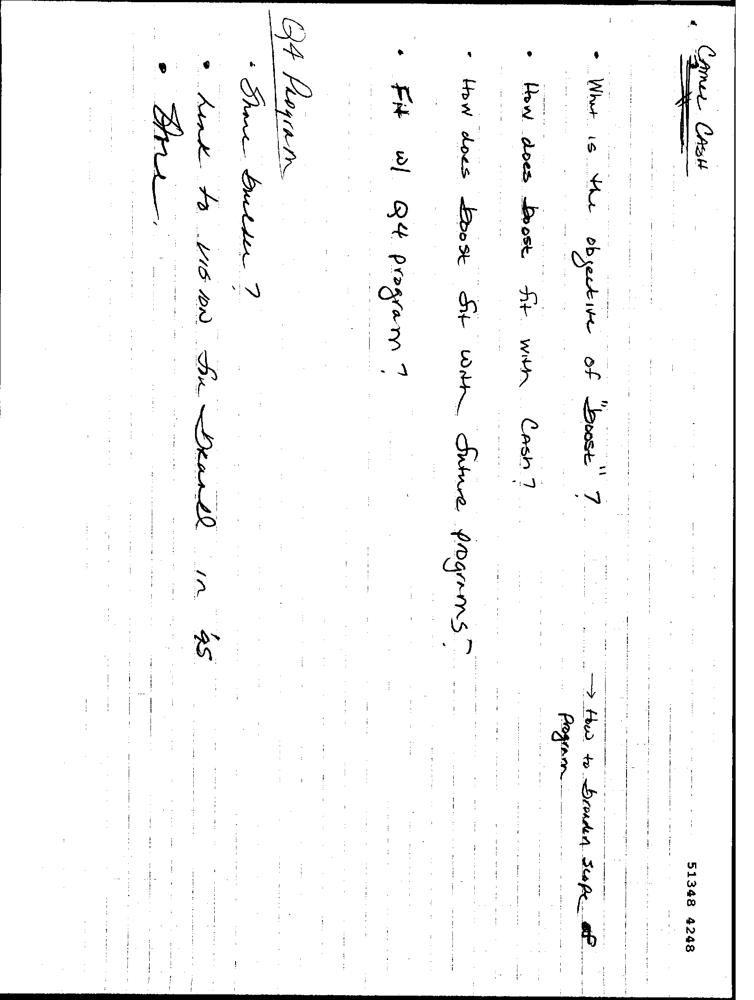 51348 4248
• Camel CASH
• What is the objective of "boost"?
→ How to broaden scope of
program
• How does boost fit with CASH?
• How does boost fit with future programs?
• Fit w/ Q4 program?
Q4 Program
• Share builder?
• Link to VISION for brand in '95
•